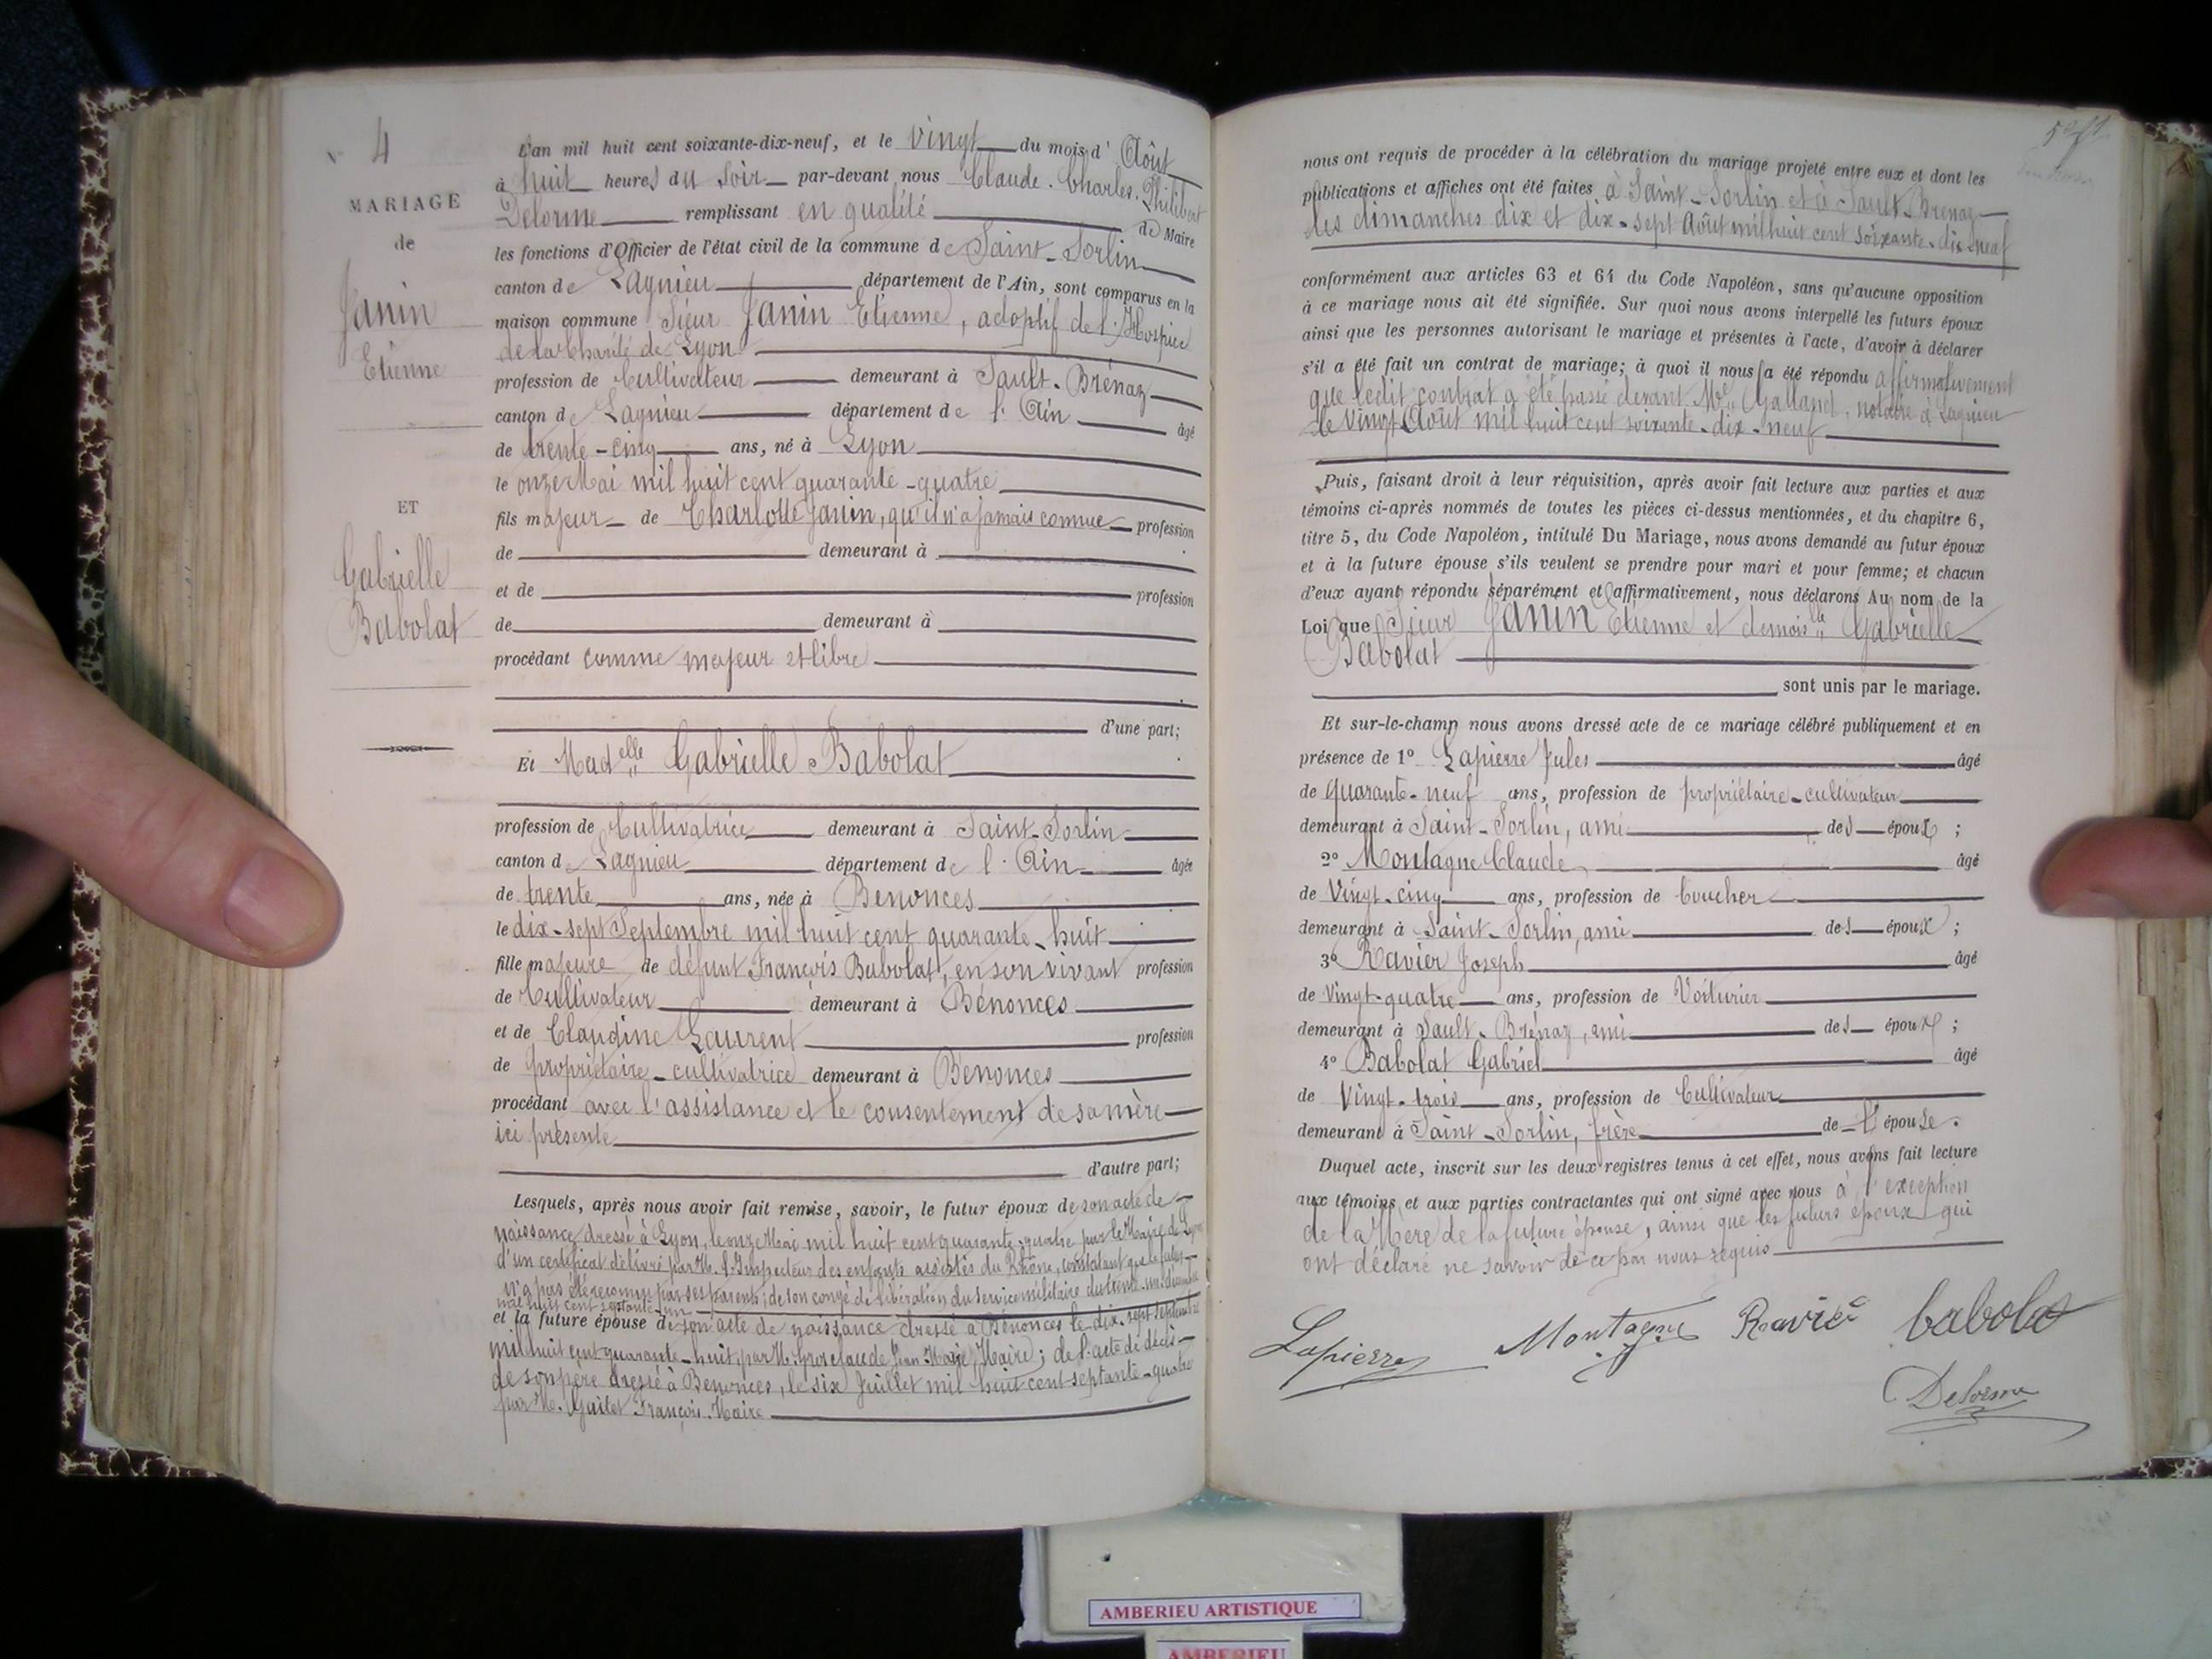 N° 4
MARIAGE
de
Janin
Etienne
ET
Gabrielle
Babolat
L'an mil huit cent soixante-dix-neuf, et le vingt du mois d' Août
à huit heures du soir par-devant nous Claude. Charles. Philibert
Delorme remplissant en qualité de Maire
les fonctions d'Officier de l'état civil de la commune de Saint-Sorlin
canton de Lagnieu département de l'Ain, sont comparus en la
maison commune Sieur Janin Etienne, adoptif de l'Hospice
de la Charité de Lyon
profession de Cultivateur demeurant à Sault-Brénaz
canton de Lagnieu département de l'Ain âgé
de trente-cinq ans, né à Lyon
le onze Mai mil huit cent quarante-quatre
fils majeur de Charlotte Janin, qu'il n'a jamais connue profession
de demeurant à
et de profession
de demeurant à
procédant comme majeur et libre
d'une part;
Et Madelle Gabrielle Babolat
profession de Cultivatrice demeurant à Saint-Sorlin
canton de Lagnieu département de l'Ain âgée
de trente ans, née à Benonces
le dix-sept Septembre mil huit cent quarante-huit
fille majeure de défunt François Babolat, en son vivant profession
de Cultivateur demeurant à Bénonces
et de Claudine Laurent profession
de propriétaire-cultivatrice demeurant à Bénonces
procédant avec l'assistance et le consentement de sa mère
ici présente
d'autre part;
Lesquels, après nous avoir fait remise, savoir, le futur époux de son acte de
naissance dressé à Lyon, le onze Mai mil huit cent quarante-quatre par le Maire de Lyon
d'un certificat délivré par M. l'Inspecteur des enfants assistés du Rhône, constatant que le futur
n'a pas été reconnu par ses parents; de son congé de libération du service militaire du trente-un décembre
mil huit cent septante-un
et la future épouse de son acte de naissance dressé à Bénonces le dix-sept septembre
mil huit cent quarante-huit, par M. Jean Marie, Maire; de l'acte de décès
de son père dressé à Benonces, le six Juillet mil huit cent septante-quatre
par M. François, Maire
nous ont requis de procéder à la célébration du mariage projeté entre eux et dont les
publications et affiches ont été faites à Saint-Sorlin et à Sault-Brenaz
les dimanches dix et dix-sept Août mil huit cent soixante-dix-neuf
conformément aux articles 63 et 64 du Code Napoléon, sans qu'aucune opposition
à ce mariage nous ait été signifiée. Sur quoi nous avons interpellé les futurs époux
ainsi que les personnes autorisant le mariage et présentes à l'acte, d'avoir à déclarer
s'il a été fait un contrat de mariage; à quoi il nous a été répondu affirmativement
que ledit contrat a été passé devant Me Galland, notaire à Lagnieu
le vingt Août mil huit cent soixante-dix-neuf
Puis, faisant droit à leur réquisition, après avoir fait lecture aux parties et aux
témoins ci-après nommés de toutes les pièces ci-dessus mentionnées, et du chapitre 6,
titre 5, du Code Napoléon, intitulé Du Mariage, nous avons demandé au futur époux
et à la future épouse s'ils veulent se prendre pour mari et pour femme; et chacun
d'eux ayant répondu séparément et affirmativement, nous déclarons Au nom de la
Loi que Sieur Janin Etienne et demoiselle Gabrielle
Babolat
sont unis par le mariage.
Et sur-le-champ nous avons dressé acte de ce mariage célébré publiquement et en
présence de 1° Lapierre Jules âgé
de quarante-neuf ans, profession de propriétaire-cultivateur
demeurant à Saint-Sorlin, ami des époux ;
2° Montagne Claude âgé
de Vingt-cinq ans, profession de boucher
demeurant à Saint-Sorlin, ami des époux ;
3° Ravier Joseph âgé
de Vingt-quatre ans, profession de Voiturier
demeurant à Sault-Brénaz, ami des époux ;
4° Babolat Gabriel âgé
de Vingt-trois ans, profession de Cultivateur
demeurant à Saint-Sorlin, frère de l'épouse.
Duquel acte, inscrit sur les deux registres tenus à cet effet, nous avons fait lecture
aux témoins et aux parties contractantes qui ont signé avec nous à l'exception
de la Mère de la future épouse, ainsi que les futurs époux qui
ont déclaré ne savoir de ce par nous requis
Lapierre Montagne Ravier babolat
Delorme
AMBERIEU ARTISTIQUE
AMBERIEU